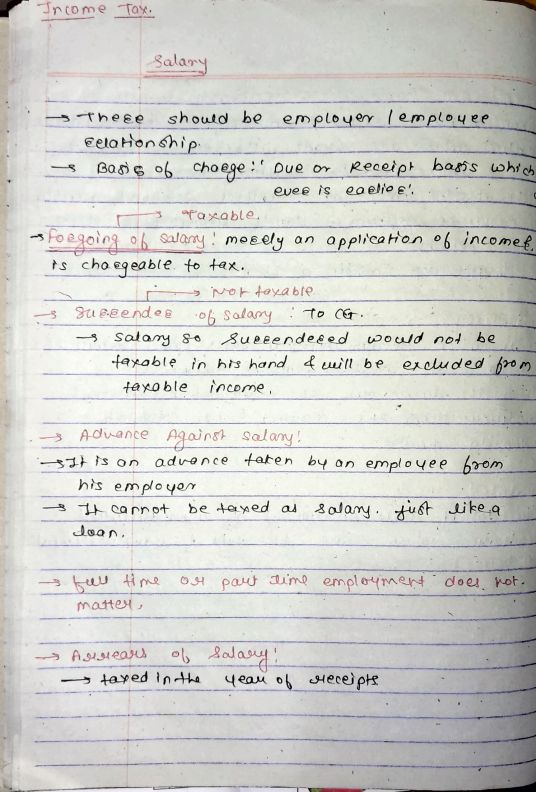 Income Tax.
Salary
→ There should be employer / employee
relationship.
→ Basis of charge:' Due or Receipt basis which
ever is earlier'.
→ Taxable.
→ Foregoing of salary: merely an application of income &
is chargeable to tax.
→ Not taxable
→ Surrender of salary : To CG.
→ Salary so surrendered would not be
taxable in his hand & will be excluded from
taxable income.
→ Advance Against salary:
→ It is an advance taken by an employee from
his employer
→ It cannot be taxed as salary. just like a
loan.
→ full time or part time employment does not
matter.
→ Arrears of Salary:
→ taxed in the year of receipts